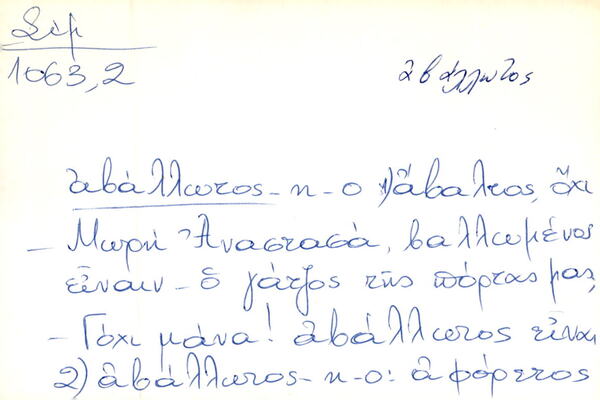 Σύμ
1063,2
ἀβάλλωτος
ἀβάλλωτος-η-ο 1) ἄβαλτος, ὄχι
- Μωρή Ἀναστασά, βαλλωμένος
εἶναιν - ὁ γάτζος τῆς πόρτας μας;
- Γόχι μάνα! ἀβάλλωτος εἶναι
2) ἀβάλλωτος-η-ο: ἀφόρετος